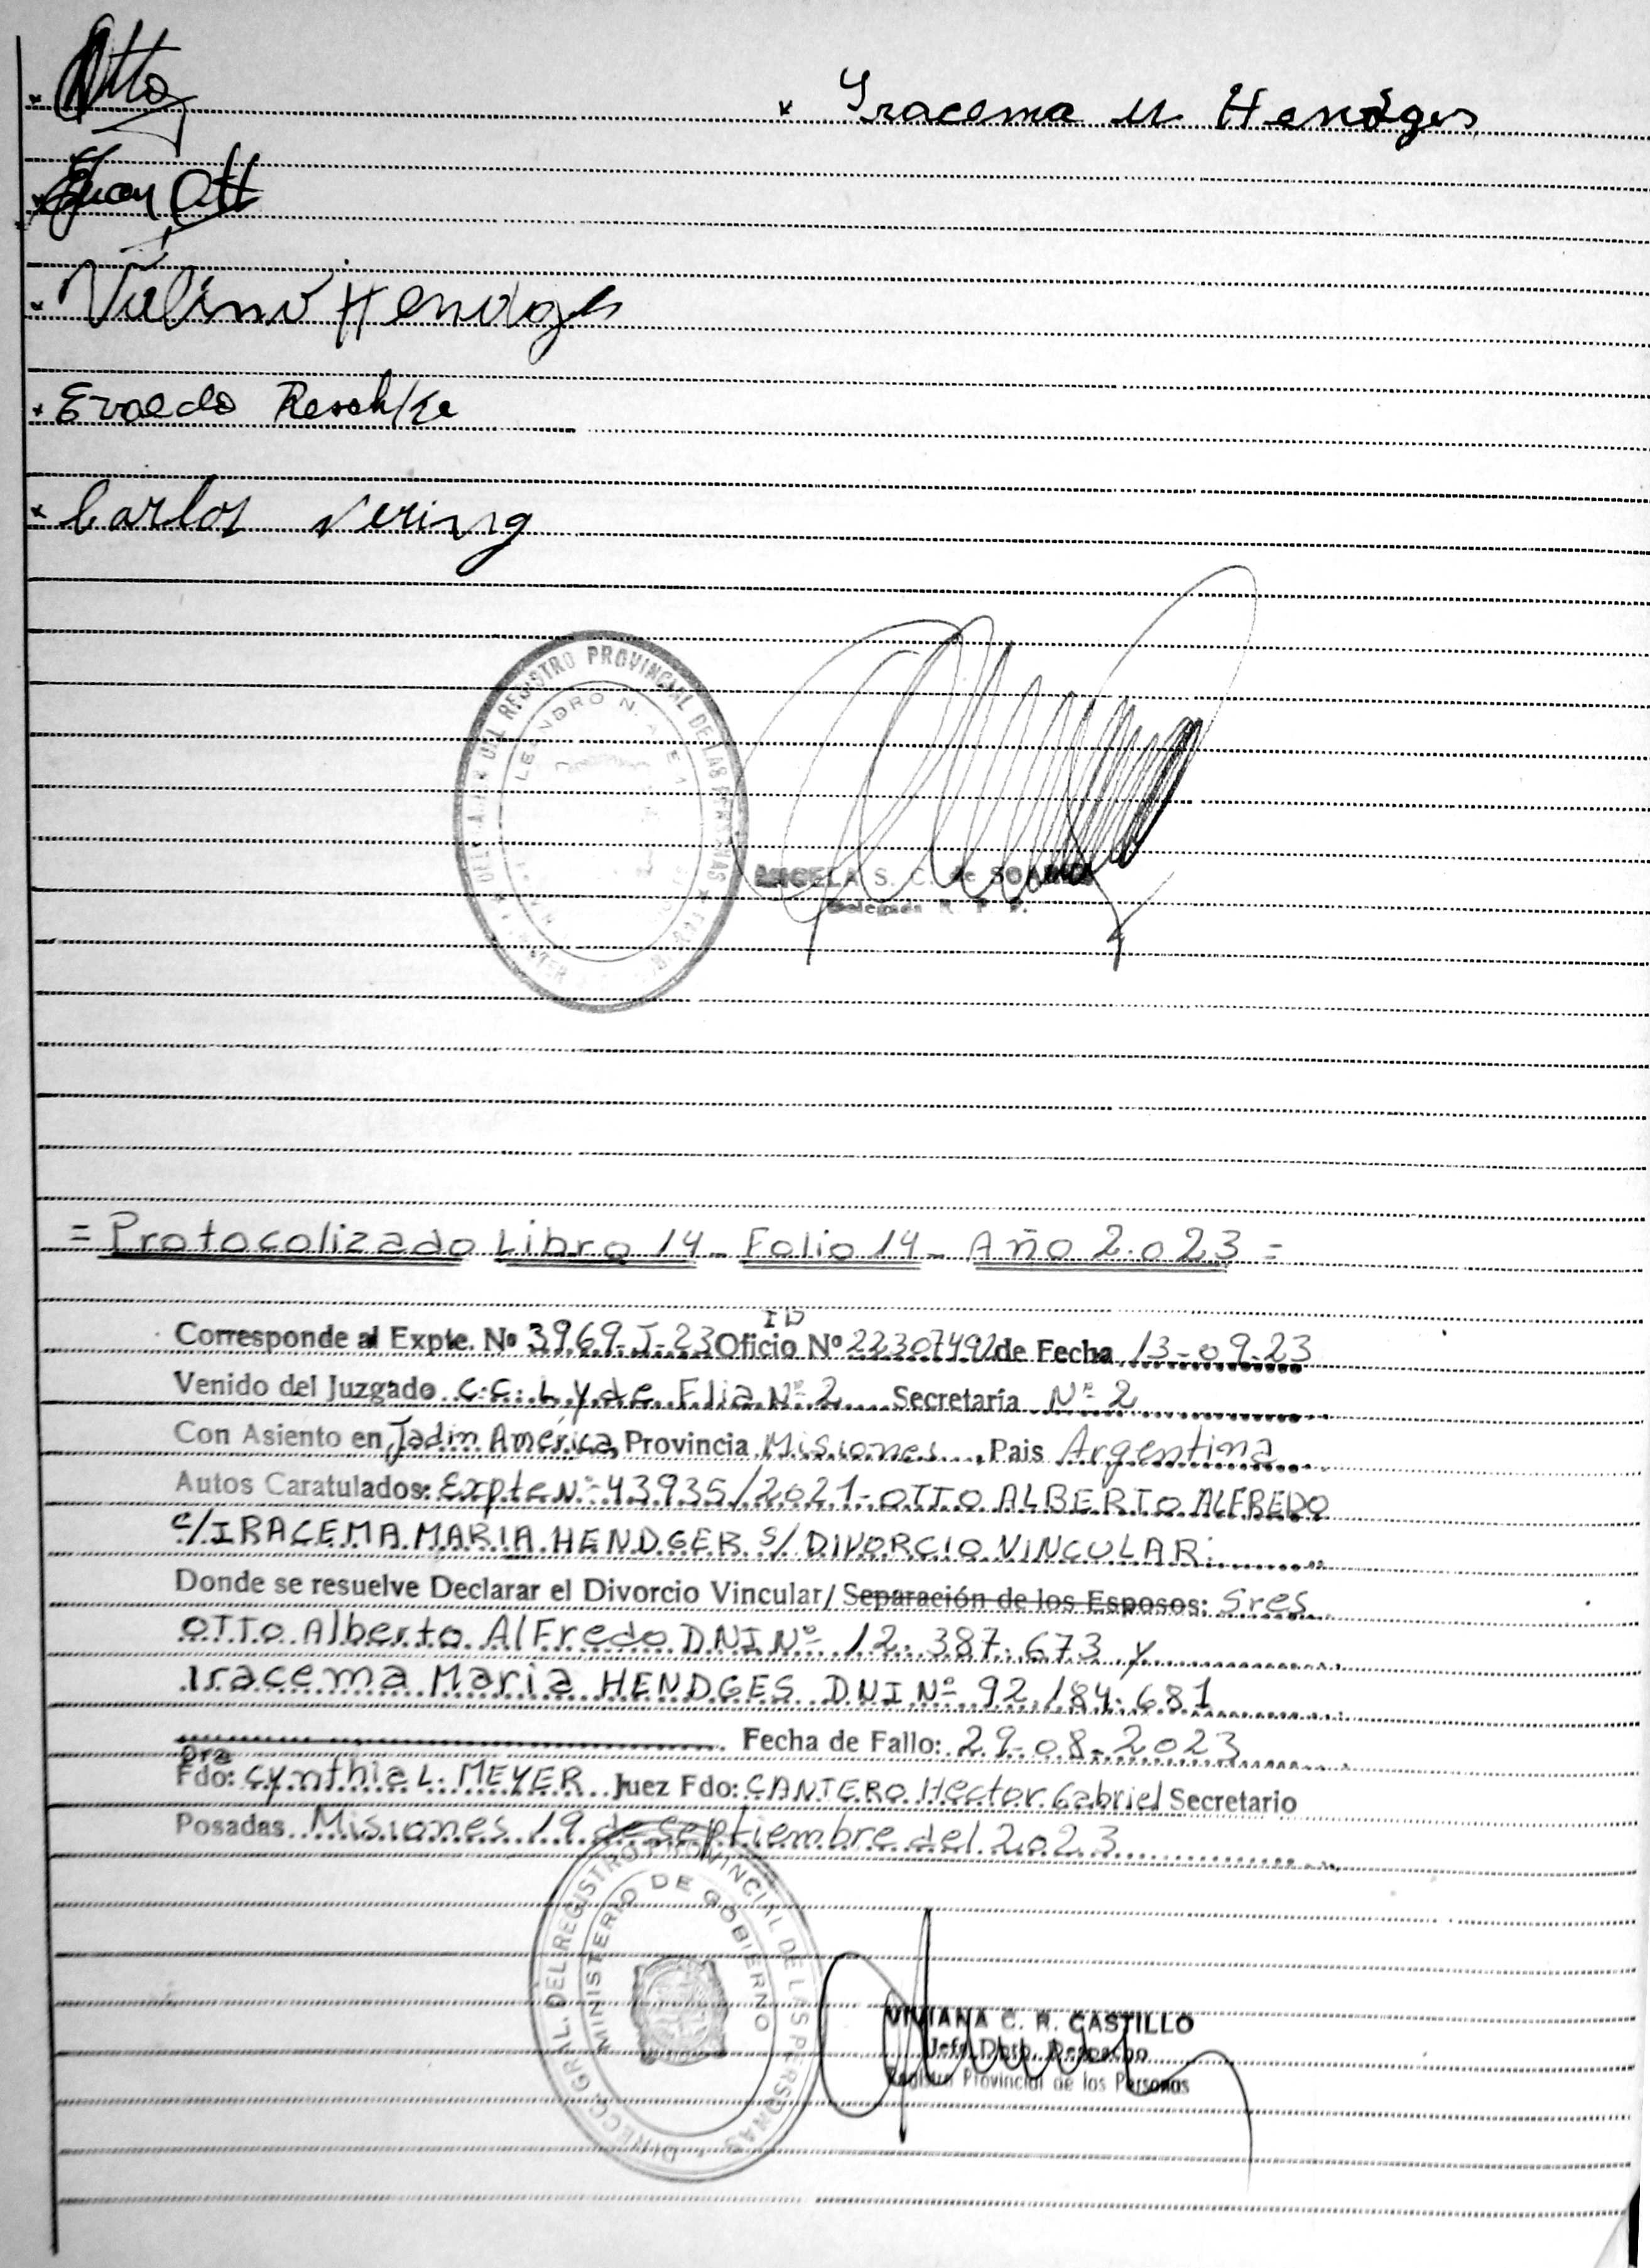 Otto
Iracema M Hendges
Juan Ott
Valino Hendges
Evaldo Reschke
Carlos Nering
DEL REGISTRO PROVINCIAL DE LAS PERSONAS
LEANDRO N.
ANGELA S. C. de SOARES
Delegada R. P. P.
= Protocolizado Libro 14 - Folio 14 - Año 2.023 =
ID
Corresponde al Expte. Nº 3969-J-23 Oficio Nº 22307492 de Fecha 13-09-23
Venido del Juzgado C.C.L. y de Flia Nº 2 Secretaría Nº 2
Con Asiento en Jadin América Provincia Misiones, Pais Argentina
Autos Caratulados: Expte Nº 43935/2021-OTTO ALBERTO ALFREDO
c/IRACEMA MARIA HENDGER s/ DIVORCIO VINCULAR.
Donde se resuelve Declarar el Divorcio Vincular/ Separación de los Esposos: Sres
OTTO Alberto AlFredo DNI Nº 12.387.673 y
Iracema Maria HENDGES DNI Nº 92.184.681
Fecha de Fallo: 29-08-2023
Dra
Fdo: Cynthia L. MEYER Juez Fdo: CANTERO Hector Gabriel Secretario
Posadas Misiones 19 de septiembre del 2023
DIRECC. GRAL. DEL REGISTRO PROVINCIAL DE LAS PERSONAS
MINISTERIO DE GOBIERNO
VIVIANA C. R. CASTILLO
Jefa Dpto. Despacho
Registro Provincial de las Personas